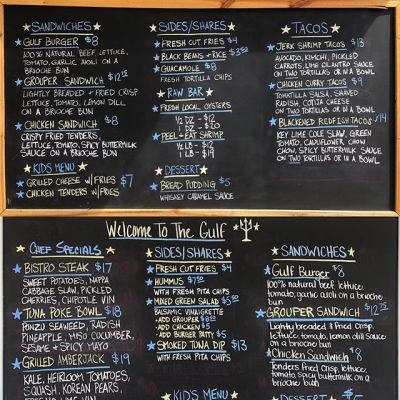 SANDWICHES
GULF BURGER $8
100% NATURAL BEEF, LETTUCE,
TOMATO, GARLIC AIOLI ON A
BRIOCHE BUN
GROUPER SANDWICH $12.75
LIGHTLY BREADED + FRIED CRISP
LETTUCE, TOMATO, LEMON DILL
ON A BRIOCHE BUN
CHICKEN SANDWICH $8
CRISPY FRIED TENDERS,
LETTUCE, TOMATO, SPICY BUTTERMILK
SAUCE ON A BRIOCHE BUN
KIDS MENU
GRILLED CHEESE W/FRIES $7
CHICKEN TENDERS W/FRIES
SIDES/SHARES
FRESH CUT FRIES $4
BLACK BEANS + RICE $3.50
GUACAMOLE $8
FRESH TORTILLA CHIPS
RAW BAR
FRESH LOCAL OYSTERS
1/2 DZ - $12
1 DZ - $20
PEEL + EAT SHRIMP
1/2 LB - $12
1 LB - $19
DESSERT
BREAD PUDDING $5
WHISKEY CARAMEL SAUCE
TACOS
JERK SHRIMP TACOS $13
AVOCADO, KIMCHI, PICKLED
CARROTS, LIME CILANTRO SAUCE
ON TWO TORTILLAS OR IN A BOWL
CHICKEN CURRY TACOS $9
TOMATILLA SALSA, SHAVED
RADISH, COTIJA CHEESE
ON TWO TORTILLAS OR IN A BOWL
BLACKENED REDFISH TACOS $14
KEY LIME COLE SLAW, GREEN
TOMATO, CAULIFLOWER CHOW
CHOW, SPICY BUTTERMILK SAUCE
ON TWO TORTILLAS OR IN A BOWL
Welcome To The Gulf
CHEF SPECIALS
BISTRO STEAK $17
SWEET POTATOES, NAPPA
CABBAGE SLAW, PICKLED
CHERRIES, CHIPOTLE VIN
TUNA POKE BOWL $18
PONZU SEAWEED, RADISH
PINEAPPLE, MISO CUCUMBER,
SESAME + SPICY MAYO
GRILLED AMBERJACK $19
KALE, HEIRLOOM TOMATOES,
SQUASH, KOREAN PEARS,
SIDES/SHARES
FRESH CUT FRIES $4
HUMMUS
WITH FRESH PITA CHIPS
MIXED GREEN SALAD
BALSAMIC VINAIGRETTE
- ADD GROUPER $8
- ADD CHICKEN $5
- ADD BURGER PATTY $5
SMOKED TUNA DIP $13
WITH FRESH PITA CHIPS
KIDS MENU
SANDWICHES
Gulf Burger $8
100% natural beef lettuce
tomato, garlic aioli on a brioche
bun
GROUPER SANDWICH $12.75
Lightly breaded & fried crisp,
lettuce, tomato, lemon dill sauce
on a brioche bun
Chicken Sandwich $8
Tenders fried crisp, lettuce,
tomato, spicy buttermilk on a
brioche bun
DESSERT